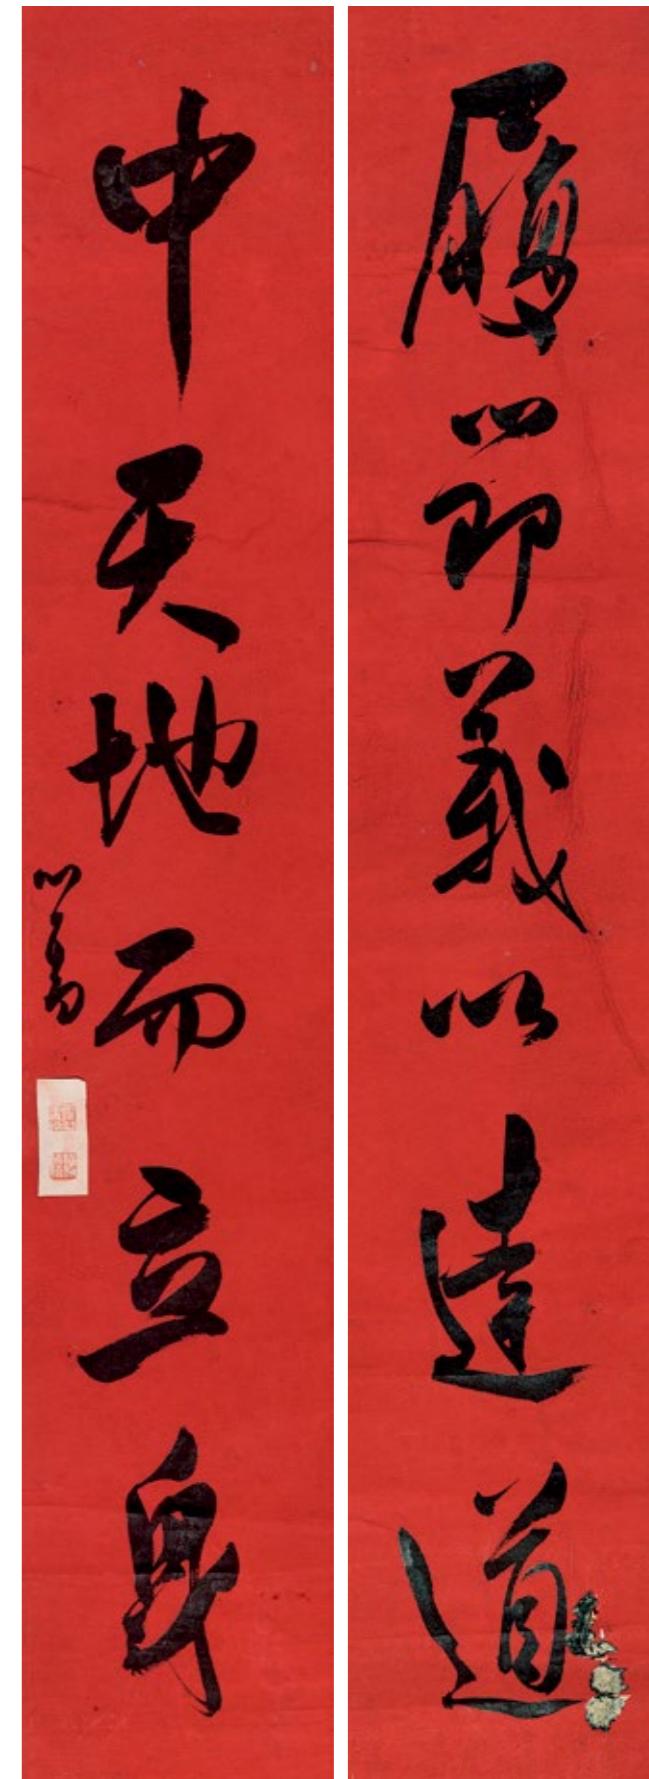 履節義以達道
中天地而立身
心畬